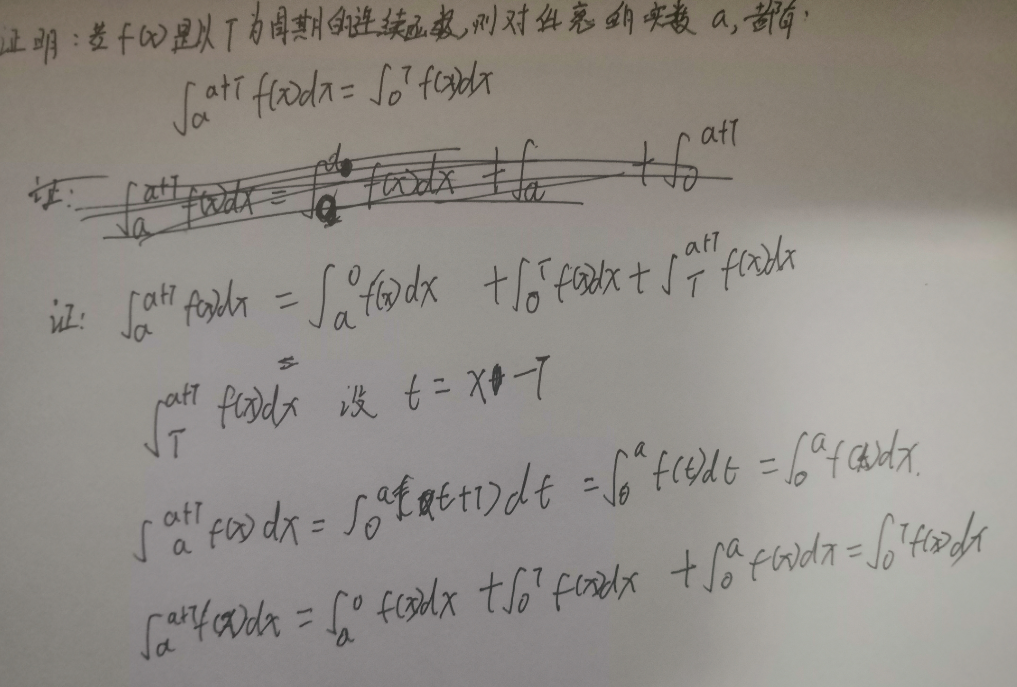 证明：若f(x)是以T为周期的连续函数，则对任意的实数a，都有：
∫_a^{a+T} f(x)dx = ∫_0^T f(x)dx
证：∫_a^{a+T} f(x)dx = ∫ f(x)dx + ∫_a + ∫_0^{a+T}
证：∫_a^{a+T} f(x)dx = ∫_a^0 f(x)dx + ∫_0^T f(x)dx + ∫_T^{a+T} f(x)dx
∫_T^{a+T} f(x)dx 设 t = x-T
∫_a^{a+T} f(x)dx = ∫_0^a f(t+T)dt = ∫_0^a f(t)dt = ∫_0^a f(x)dx.
∫_a^{a+T} f(x)dx = ∫_a^0 f(x)dx + ∫_0^T f(x)dx + ∫_0^a f(x)dx = ∫_0^T f(x)dx